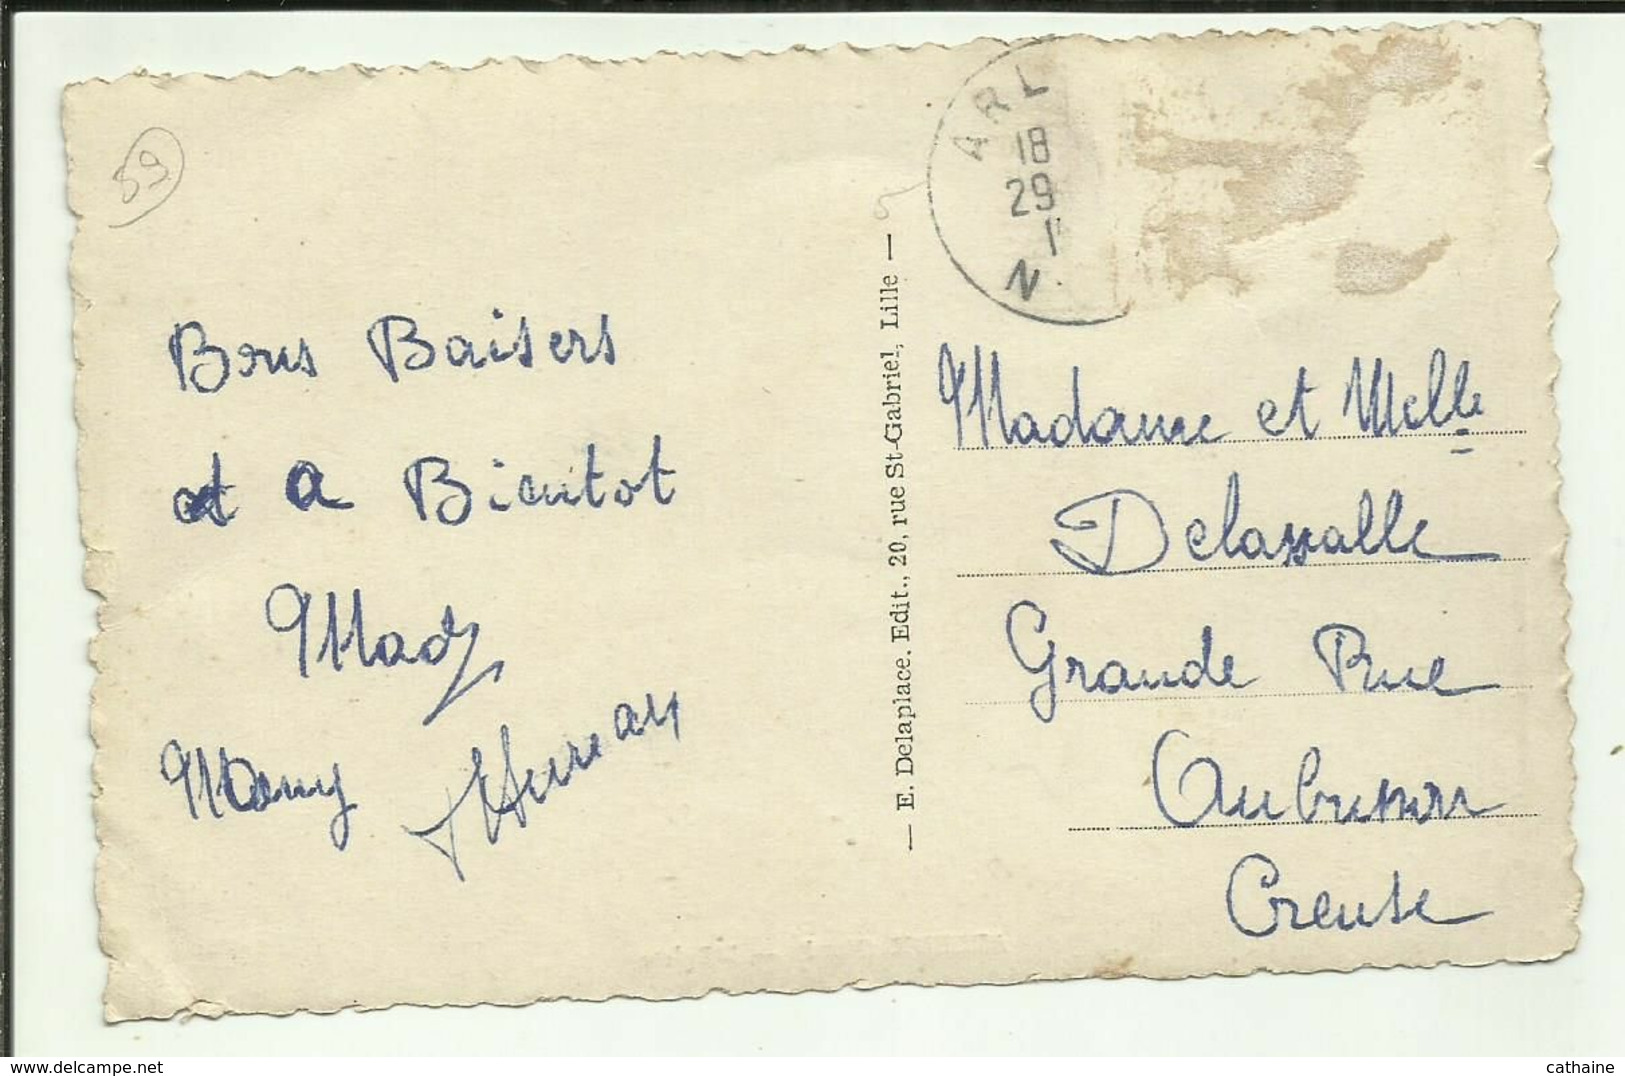 59
Bons Baisers
et a Bientot
Mady
Mamy
— E. Delaplace. Edit., 20, rue St-Gabriel, Lille —
ARL
18
29
1
N
Madame et Melle
Delassalle
Grande Rue
Aubusson
Creuse
cathaine